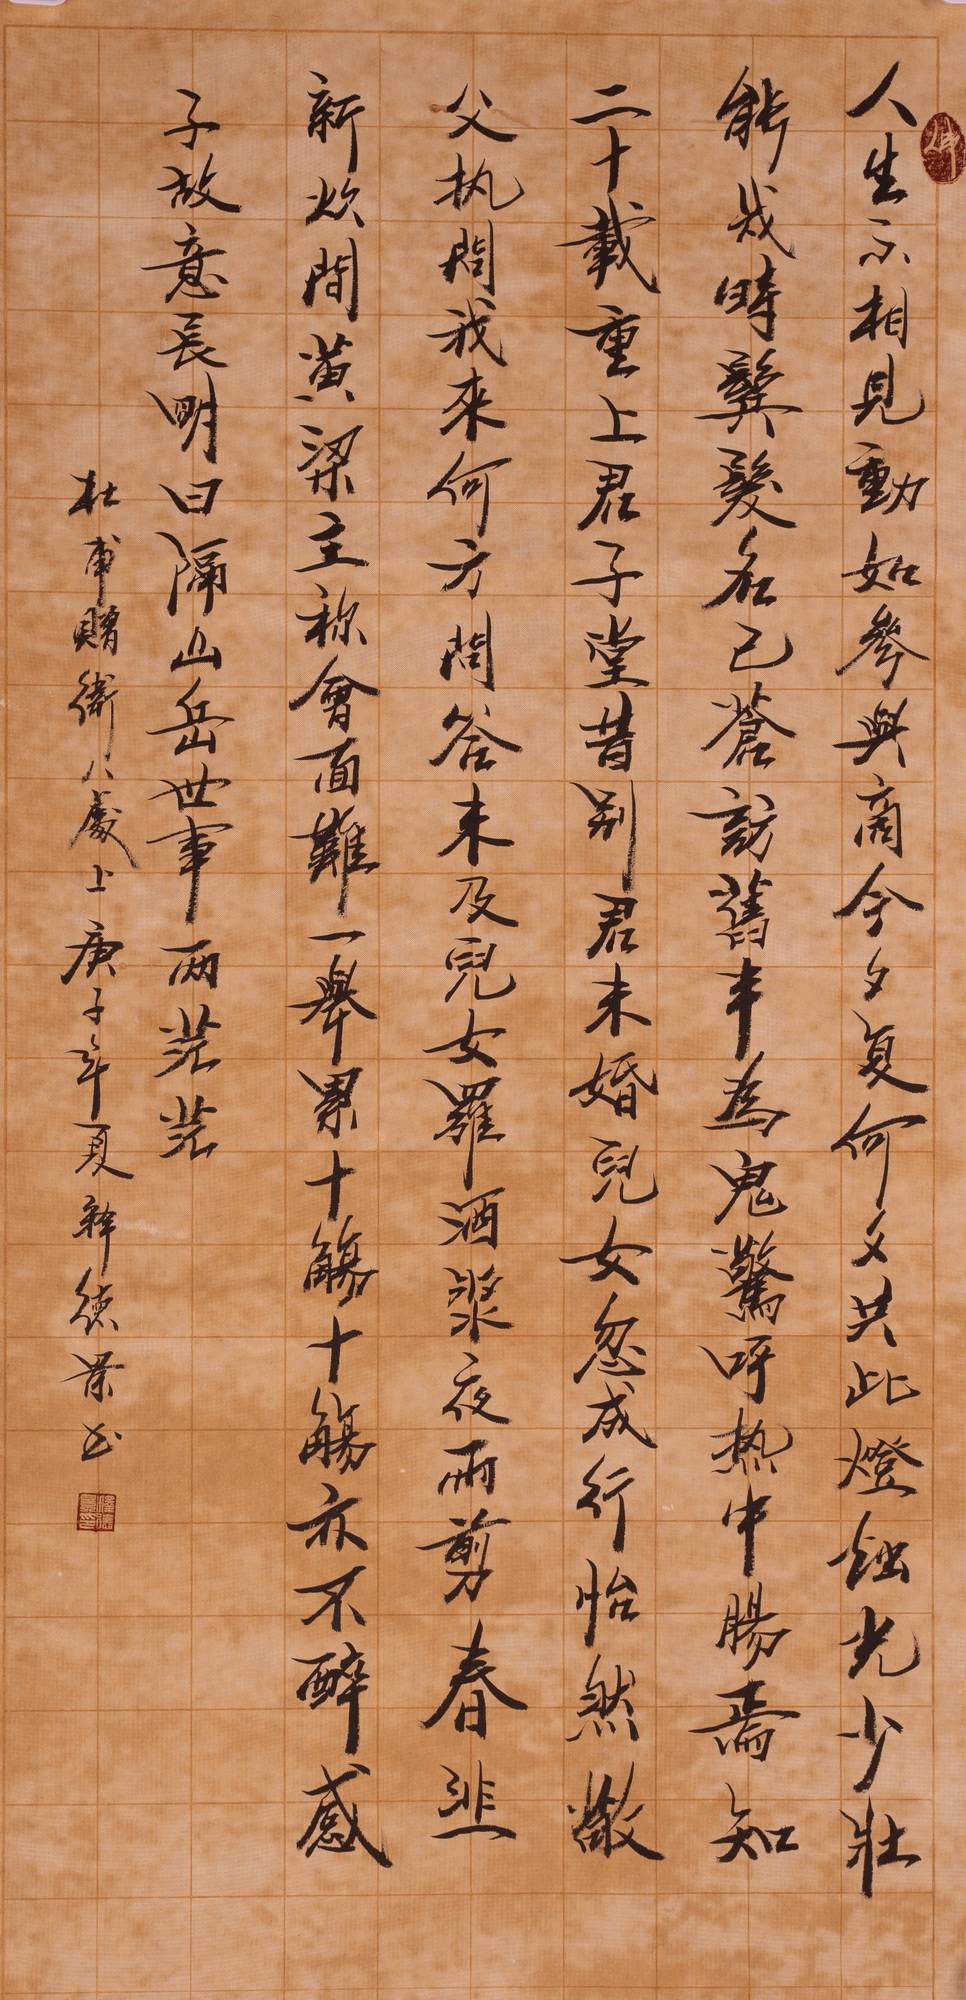 人生不相見動如參與商今夕复何夕共此燈燭光少壯
能幾時鬢髮各已蒼訪舊半為鬼驚呼热中腸焉知
二十載重上君子堂昔别君未婚兒女忽成行怡然敬
父执問我來何方問答未及兒女羅酒漿夜雨剪春韭
新炊間黄粱主称會面難一舉累十觴十觴亦不醉感
子故意長明日隔山岳世事两茫茫
杜甫贈衛八處士庚子年夏 德景书